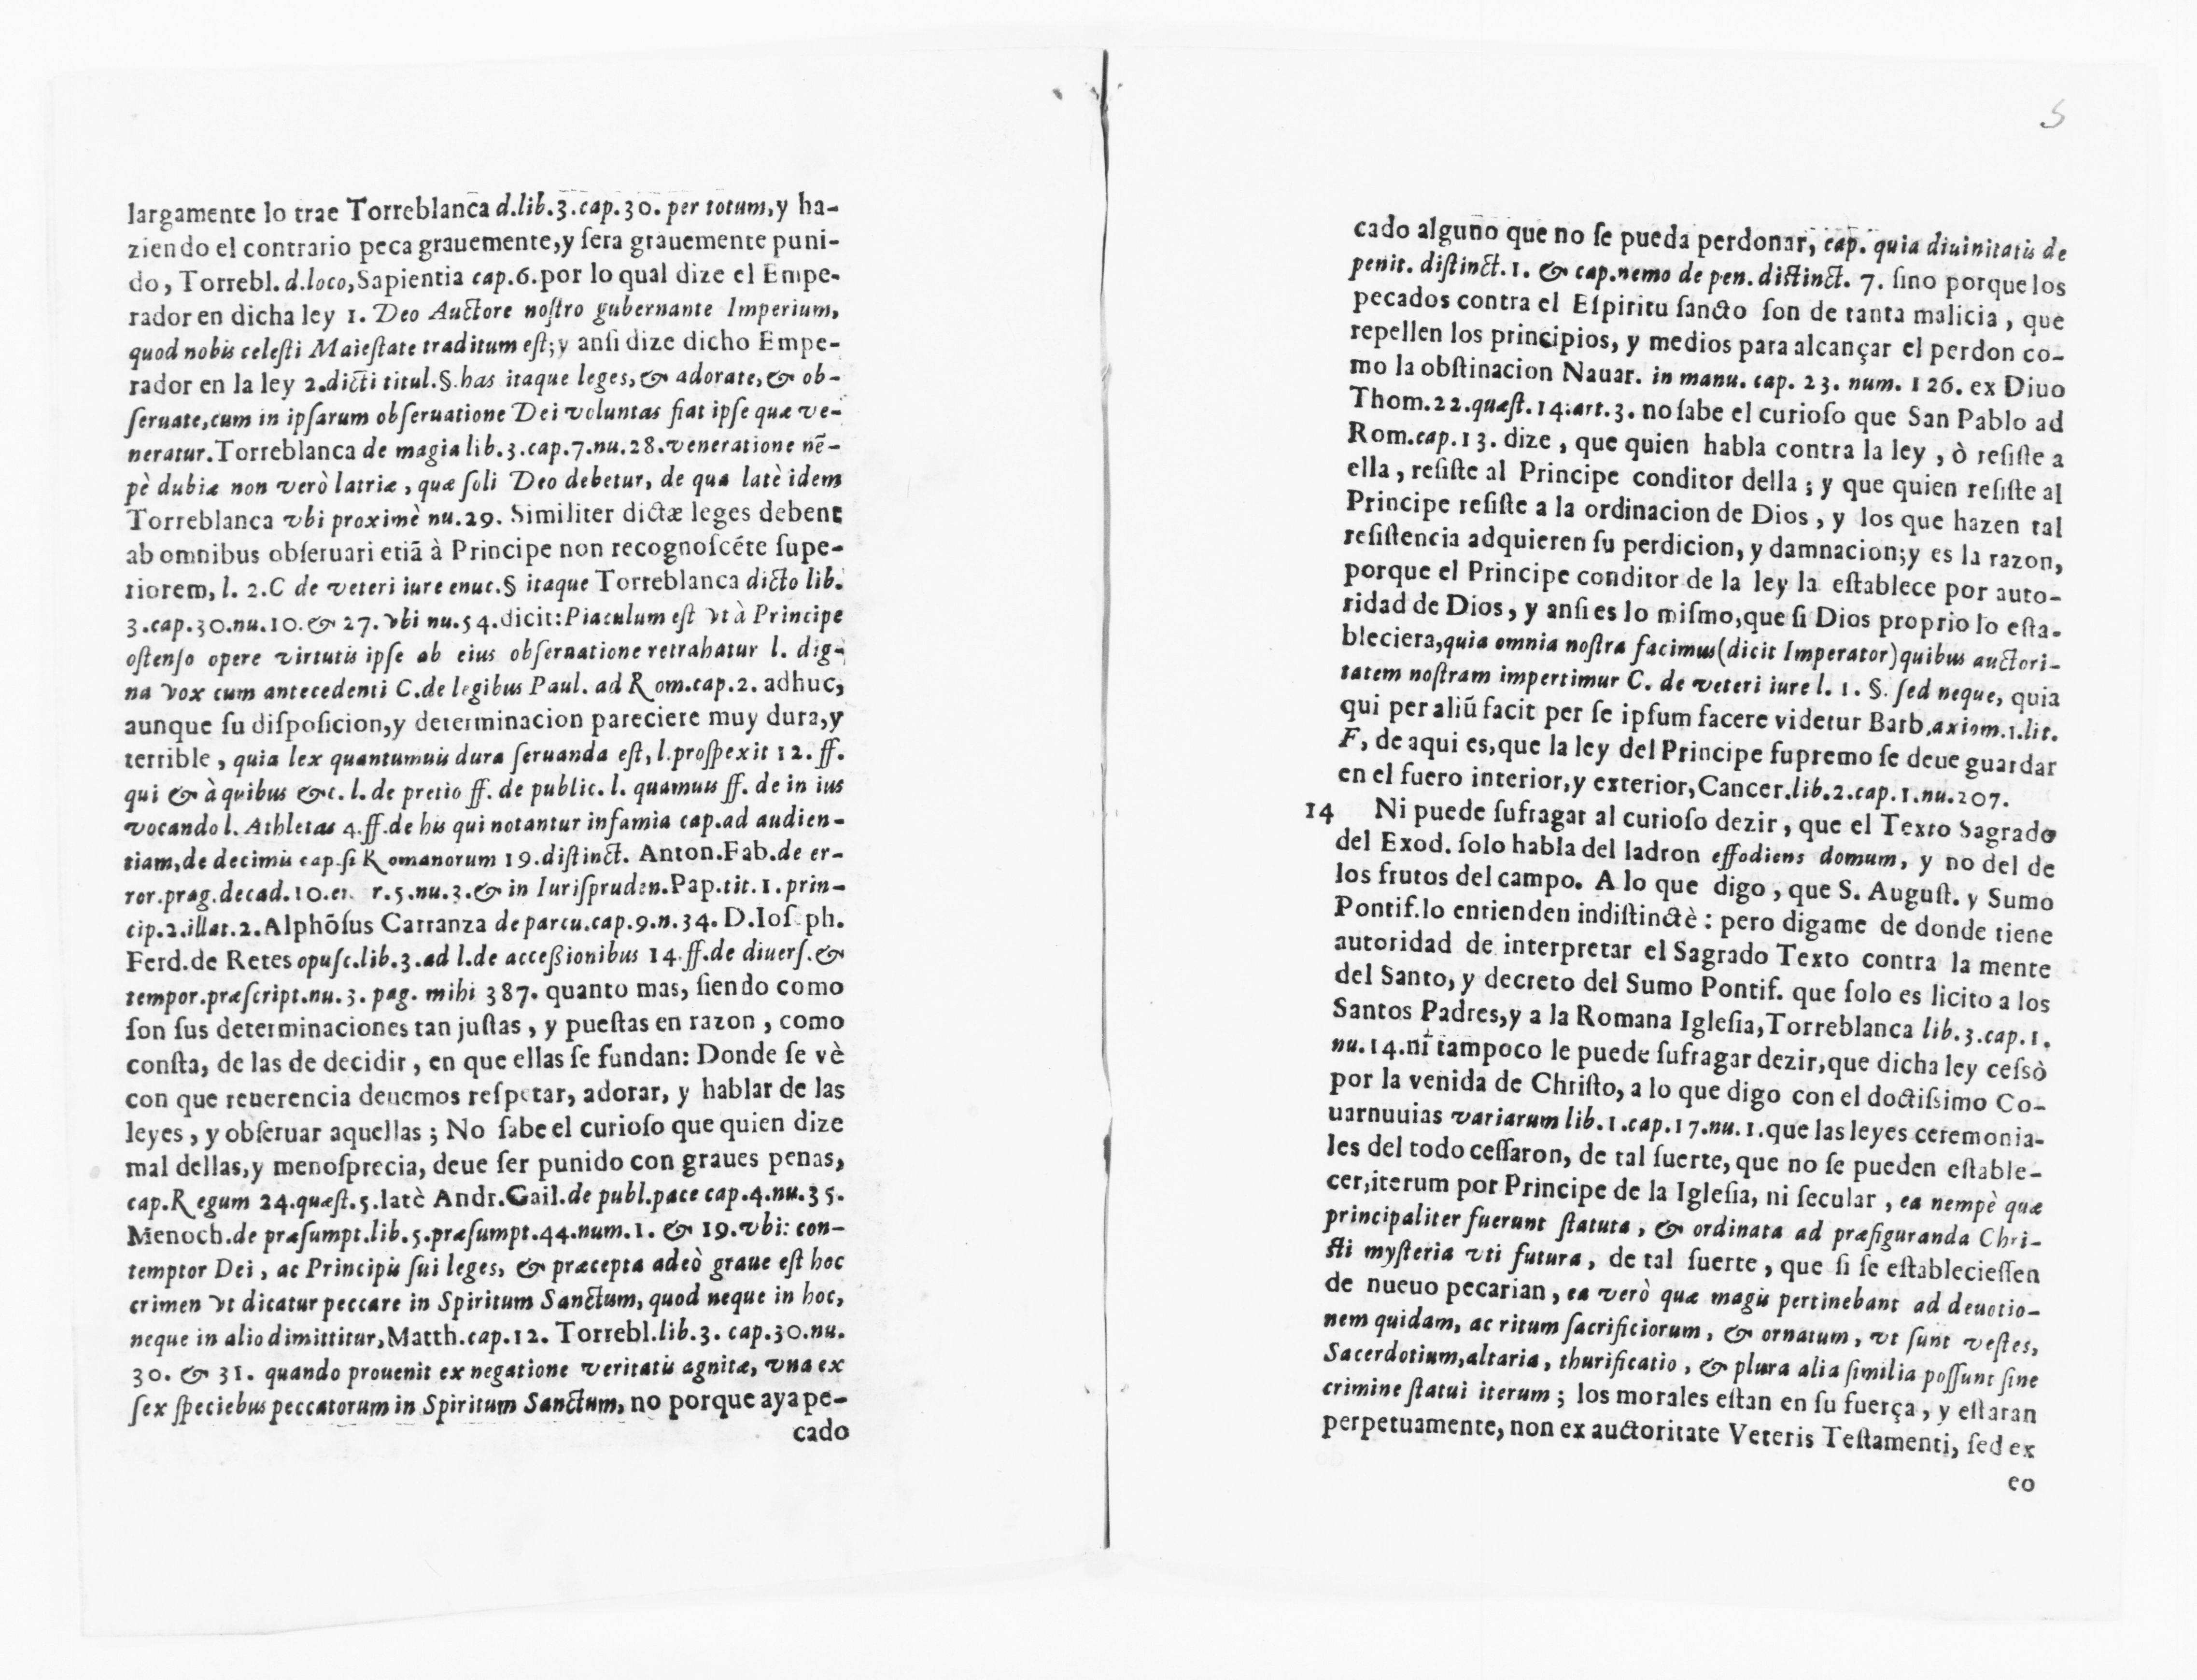 largamente lo trae Torreblanca d.lib.3.cap.30. per totum,y ha-
ziendo el contrario peca grauemente,y ſera grauemente puni-
do, Torrebl. d.loco,Sapientia cap.6.por lo qual dize el Empe-
rador en dicha ley 1. Deo Auctore noſtro gubernante Imperium,
quod nobis celeſti Maieſtate traditum eſt;y anſi dize dicho Empe-
rador en la ley 2.dicti titul.§.has itaque leges,& adorate,& ob-
ſeruate,cum in ipſarum obſeruatione Dei voluntas fiat ipſe quæ ve-
neratur.Torreblanca de magia lib.3.cap.7.nu.28.veneratione nē-
pè dubiæ non verò latriæ, quæ ſoli Deo debetur, de qua latè idem
Torreblanca vbi proximè nu.29. Similiter dictæ leges debent
ab omnibus obſeruari etiã à Principe non recognoſcéte ſupe-
riorem, l. 2.C de veteri iure enuc.§ itaque Torreblanca dicto lib.
3.cap.30.nu.10.& 27.vbi nu.54.dicit:Piaculum eſt vt à Principe
oſtenſo opere virtutis ipſe ab eius obſeruatione retrahatur l. dig-
na vox cum antecedenti C.de legibus Paul. ad Rom.cap.2. adhuc,
aunque ſu diſpoſicion,y determinacion pareciere muy dura,y
terrible, quia lex quantumuis dura ſeruanda eſt, l.proſpexit 12. ff.
qui & à quibus &c. l. de pretio ff. de public. l. quamuis ff. de in ius
vocando l. Athletas 4.ff.de his qui notantur infamia cap.ad audien-
tiam,de decimis cap.ſi Romanorum 19.diſtinct. Anton.Fab.de er-
ror.prag.decad.10.er. r.5.nu.3.& in Iuriſpruden.Pap.tit.1.prin-
cip.2.illat.2.Alphõſus Carranza de partu.cap.9.n.34. D.Ioſ ph.
Ferd.de Retes opuſc.lib.3.ad l.de acceßionibus 14.ff.de diuerſ.&
tempor.præſcript.nu.3. pag. mihi 387. quanto mas, ſiendo como
ſon ſus determinaciones tan juſtas, y pueſtas en razon, como
conſta, de las de decidir, en que ellas ſe fundan: Donde ſe vè
con que reuerencia deuemos reſpetar, adorar, y hablar de las
leyes, y obſeruar aquellas; No ſabe el curioſo que quien dize
mal dellas,y menoſprecia, deue ſer punido con graues penas,
cap.Regum 24.quæſt.5.latè Andr.Gail.de publ.pace cap.4.nu.35.
Menoch.de præſumpt.lib.5.præſumpt.44.num.1. & 19.vbi: con-
temptor Dei, ac Principis ſui leges, & præcepta adeò graue eſt hoc
crimen vt dicatur peccare in Spiritum Sanctum, quod neque in hoc,
neque in alio dimittitur,Matth.cap.12. Torrebl.lib.3. cap.30.nu.
30. & 31. quando prouenit ex negatione veritatis agnitæ, vna ex
ſex ſpeciebus peccatorum in Spiritum Sanctum, no porque aya pe-
cado
5
cado alguno que no ſe pueda perdonar, cap. quia diuinitatis de
penit. diſtinct.1. & cap.nemo de pen. diſtinct. 7. ſino porque los
pecados contra el Eſpiritu ſancto ſon de tanta malicia, que
repellen los principios, y medios para alcançar el perdon co-
mo la obſtinacion Nauar. in manu. cap. 23. num. 126. ex Diuo
Thom.22.quæſt.14.art.3. no ſabe el curioſo que San Pablo ad
Rom.cap.13. dize, que quien habla contra la ley, ò reſiſte a
ella, reſiſte al Principe conditor della; y que quien reſiſte al
Principe reſiſte a la ordinacion de Dios, y los que hazen tal
reſiſtencia adquieren ſu perdicion, y damnacion;y es la razon,
porque el Principe conditor de la ley la eſtablece por auto-
ridad de Dios, y anſi es lo miſmo,que ſi Dios proprio lo eſta-
bleciera,quia omnia noſtra facimus(dicit Imperator)quibus auctori-
tatem noſtram impertimur C. de veteri iure l. 1. §. ſed neque, quia
qui per aliũ facit per ſe ipſum facere videtur Barb.axiom.1.lit.
F, de aqui es,que la ley del Principe ſupremo ſe deue guardar
en el fuero interior,y exterior,Cancer.lib.2.cap.1.nu.207.
14 Ni puede ſufragar al curioſo dezir, que el Texto Sagrado
del Exod. ſolo habla del ladron effodiens domum, y no del de
los frutos del campo. A lo que digo, que S. Auguſt. y Sumo
Pontif.lo entienden indiſtinctè: pero digame de donde tiene
autoridad de interpretar el Sagrado Texto contra la mente
del Santo, y decreto del Sumo Pontif. que ſolo es licito a los
Santos Padres,y a la Romana Igleſia,Torreblanca lib.3.cap.1.
nu.14.ni tampoco le puede ſufragar dezir,que dicha ley ceſsò
por la venida de Chriſto, a lo que digo con el doctiſsimo Co-
uarnuuias variarum lib.1.cap.17.nu.1.que las leyes ceremonia-
les del todo ceſſaron, de tal ſuerte, que no ſe pueden eſtable-
cer,iterum por Principe de la Igleſia, ni ſecular, ea nempè quæ
principaliter fuerunt ſtatuta, & ordinata ad præfiguranda Chri-
ſti myſteria vti futura, de tal ſuerte, que ſi ſe eſtablecieſſen
de nueuo pecarian, ea verò quæ magis pertinebant ad deuotio-
nem quidam, ac ritum ſacrificiorum, & ornatum, vt ſunt veſtes,
Sacerdotium,altaria, thurificatio, & plura alia ſimilia poſſunt ſine
crimine ſtatui iterum; los morales eſtan en ſu fuerça, y eſtaran
perpetuamente, non ex auctoritate Veteris Teſtamenti, ſed ex
eo